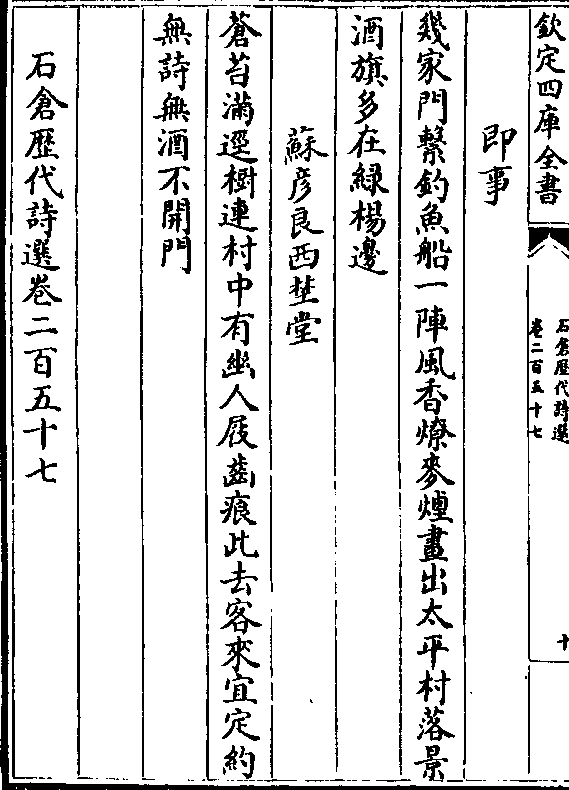 欽定四庫全書
石倉歴代詩選
卷二百五十七
十
即事
幾家門繫釣魚船一陣風香燎麥煙畫出太平村落景
酒旗多在緑楊邊
蘇彦良西埜堂
蒼苔滿逕樹連村中有幽人屐齒痕此去客來宜定約
無詩無酒不開門
石倉歴代詩選卷二百五十七